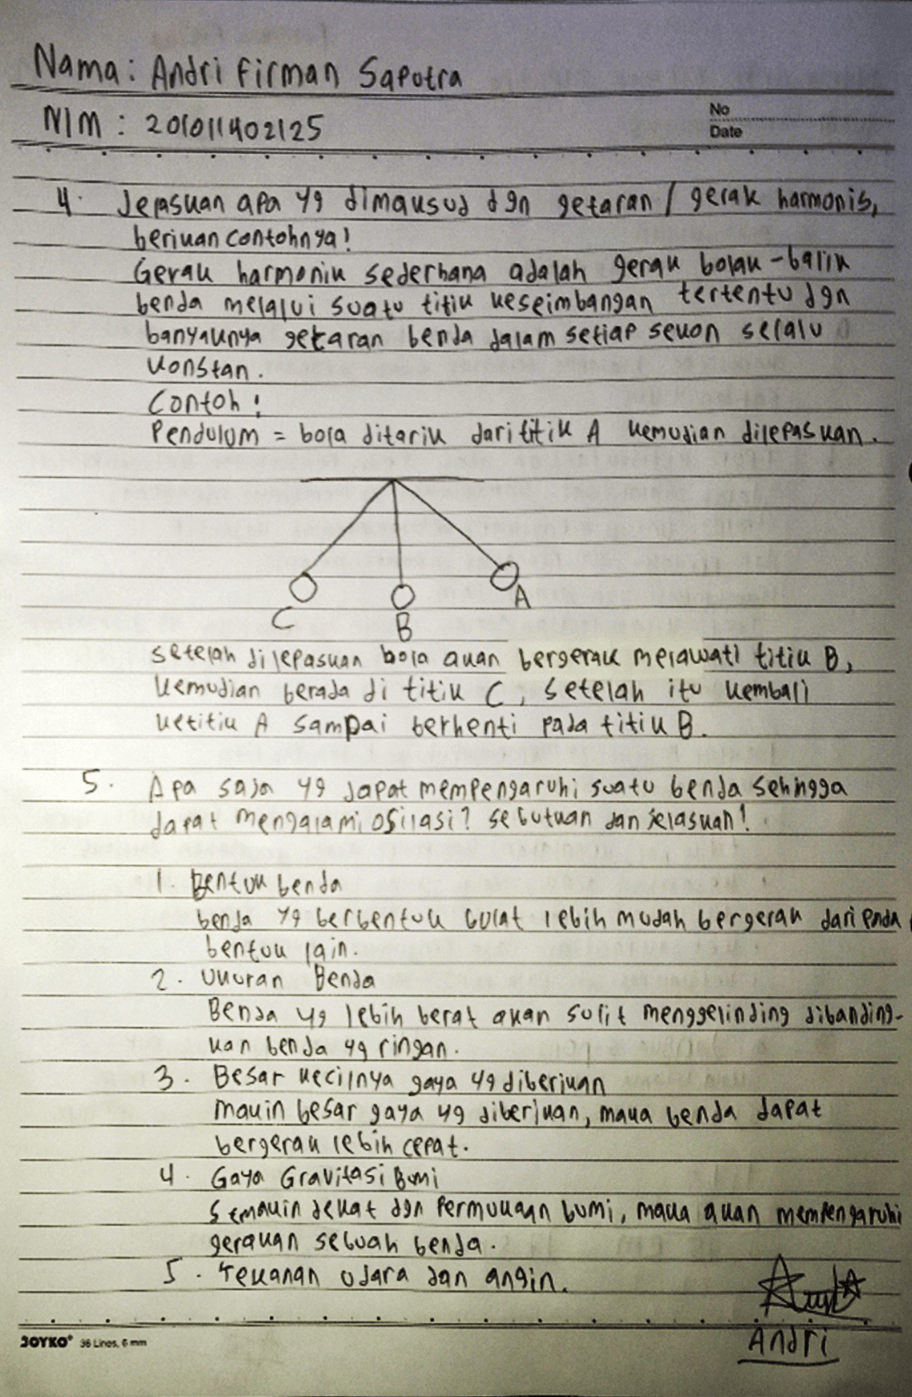 Nama : Andri Firman Saputra
NIM : 201011402125
No
Date
4. Jelaskan apa yg dimaksud dgn getaran / gerak harmonis,
berikan contohnya!
Gerak harmonik sederhana adalah gerak bolak-balik
benda melalui suatu titik keseimbangan tertentu dgn
banyaknya getaran benda dalam setiap sekon selalu
konstan.
Contoh :
Pendulum = bola ditarik dari titik A kemudian dilepaskan.
A
C
B
setelah dilepaskan bola akan bergerak melawati titik B,
kemudian berada di titik C, setelah itu kembali
ketitik A sampai berhenti pada titik B.
5. Apa saja yg dapat mempengaruhi suatu benda sehingga
dapat mengalami osilasi? sebutkan dan jelaskan!
1. Bentuk benda
benda yg berbentuk bulat lebih mudah bergerak dari pada
bentuk lain.
2. Ukuran Benda
Benda yg lebih berat akan sulit menggelinding dibanding-
kan benda yg ringan.
3. Besar kecilnya gaya yg diberikan
makin besar gaya yg diberikan, maka benda dapat
bergerak lebih cepat.
4. Gaya Gravitasi Bumi
Semakin dekat dgn Permukaan bumi, maka akan mempengaruhi
gerakan sebuah benda.
5. Tekanan udara dan angin.
Andri
JOYKO® 36 Lines, 6 mm